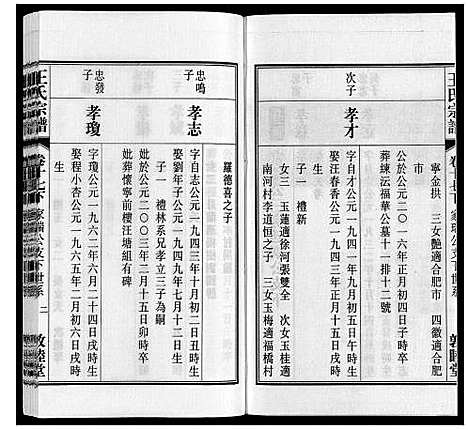 王氏宗譜
卷十七下 家瓛公支下世系
敦睦堂
寧金拱 三女艷適合肥市 四徽適合肥
市
公於公元二○一六年正月初四日子時卒
葬埬沄福華公墓十一排十二號
次子
孝才
字自才公元一九四九年九月五日午時生
娶汪春香公元一九五一年正月初九日戌時生
子一 禮新
女三 玉蓮適徐河張雙全 次女玉桂適
南河村李道恒之子 三女玉梅適福橋村
羅德喜之子
忠鳴
子
孝志
字自志公元一九四三年十月初二日丑時生
娶劉年子公元一九四九年七月十二日生
子一 禮林系兄孝立三子為嗣
妣於公元二○○三年二月十五日卯時卒
妣葬懷寧前樓汪塘組有碑
忠發
子
孝瓊
字瓊公元一九六二年六月二十四日戌時生
娶程小杏公元一九六五年二月初六日戌時
生
王氏宗譜
卷十七下 家瓛公支下世系 二
敦睦堂